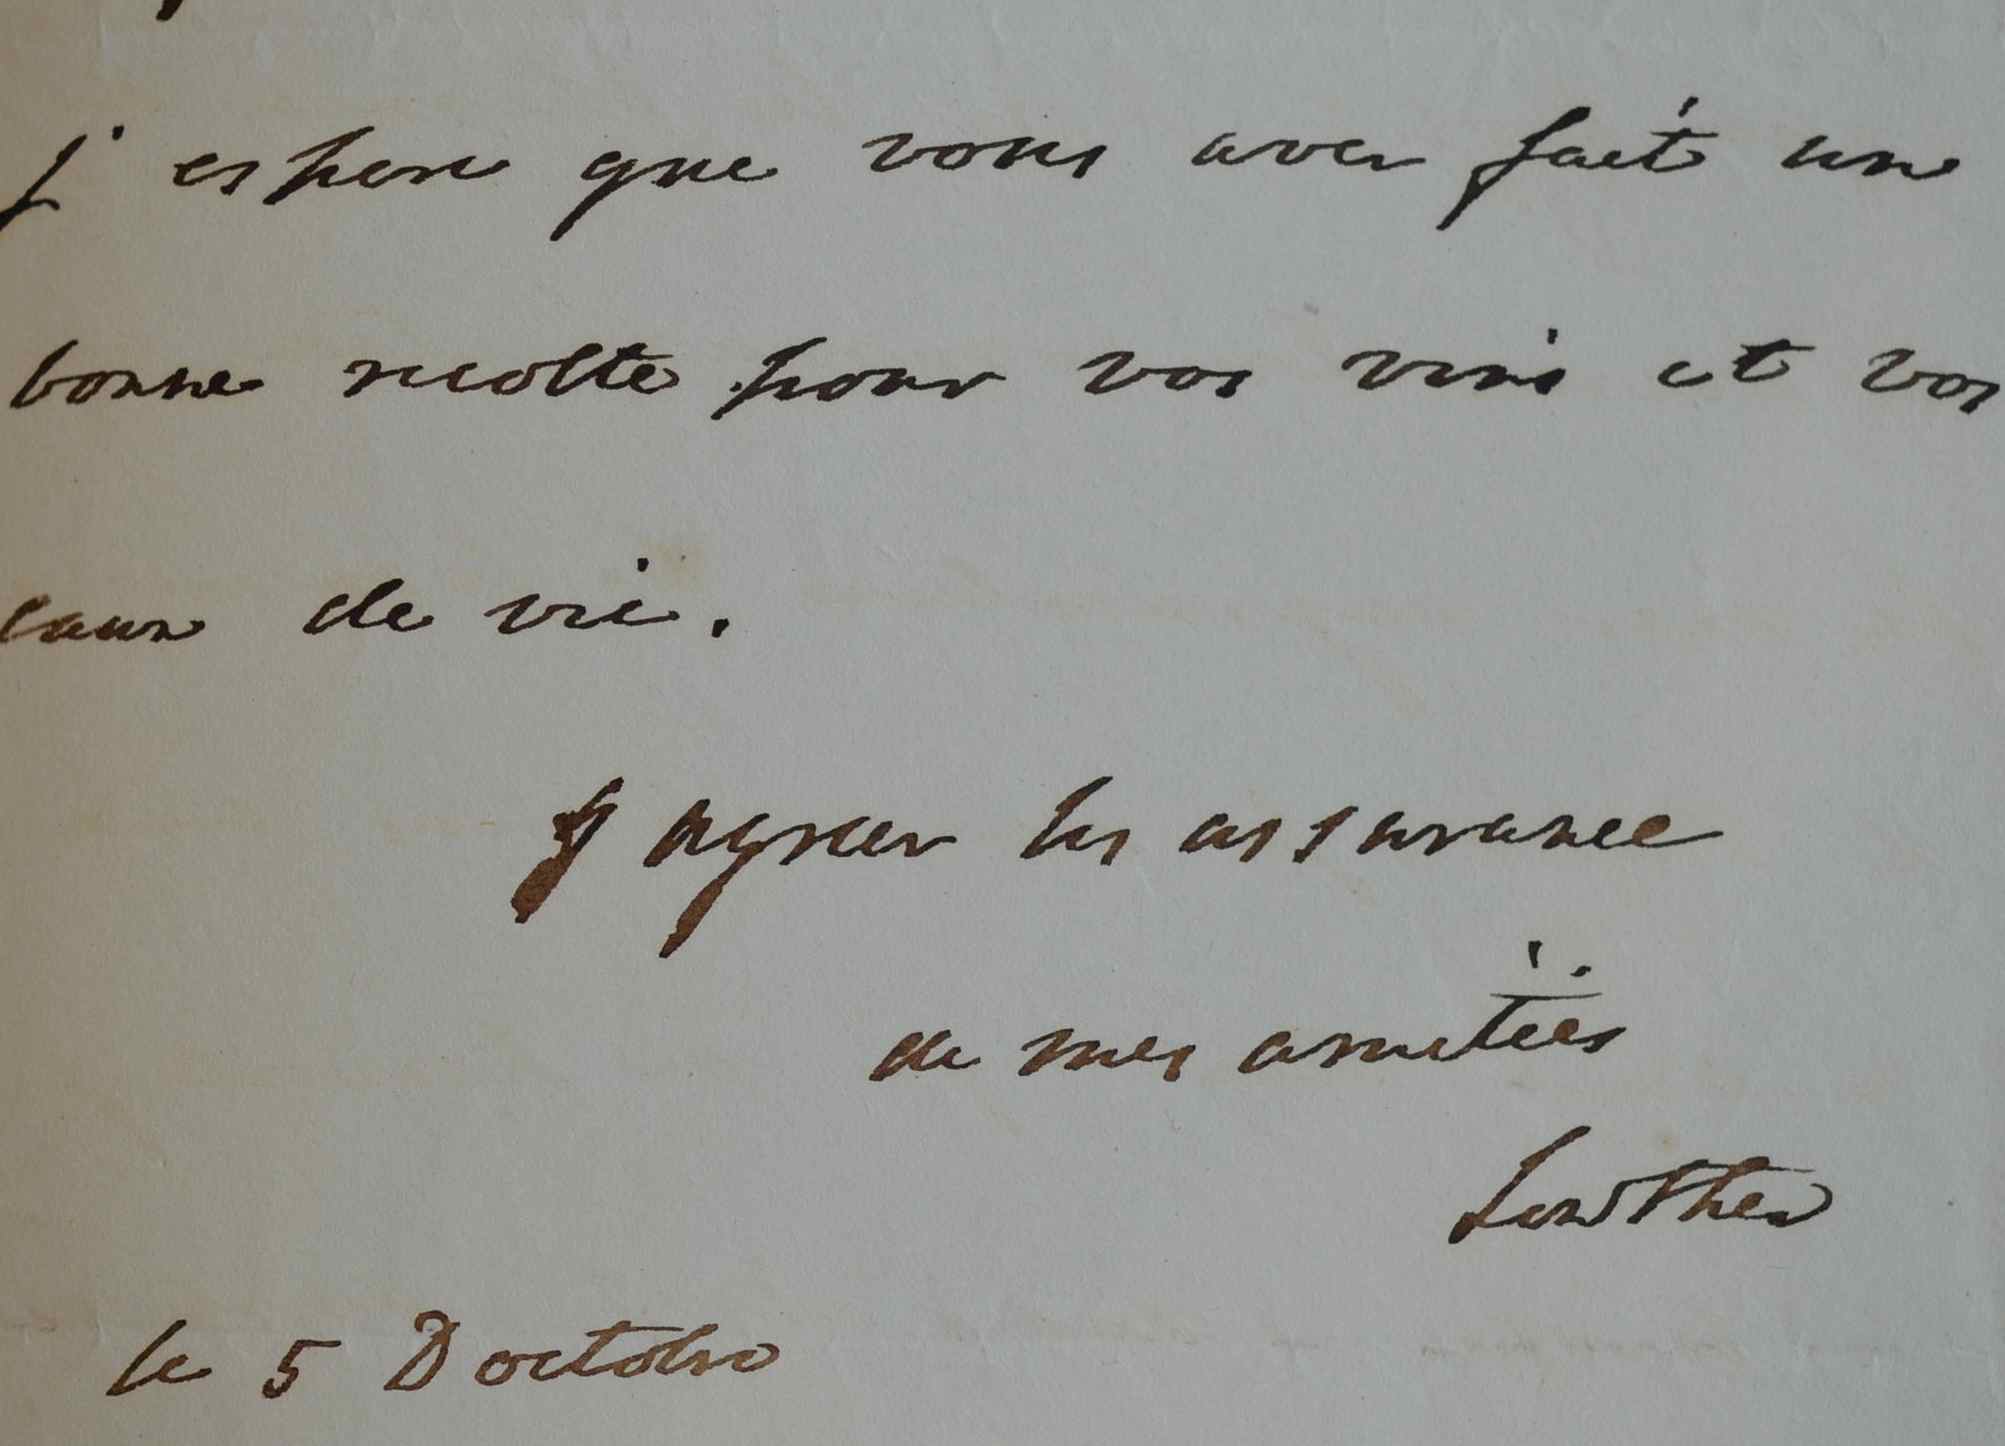 j'espere que vous aver fait une
bonne recolte pour vos vins et vos
eaux de vie.
agreer les assurance
de mes amitiés
Lowther
le 5 D octobre